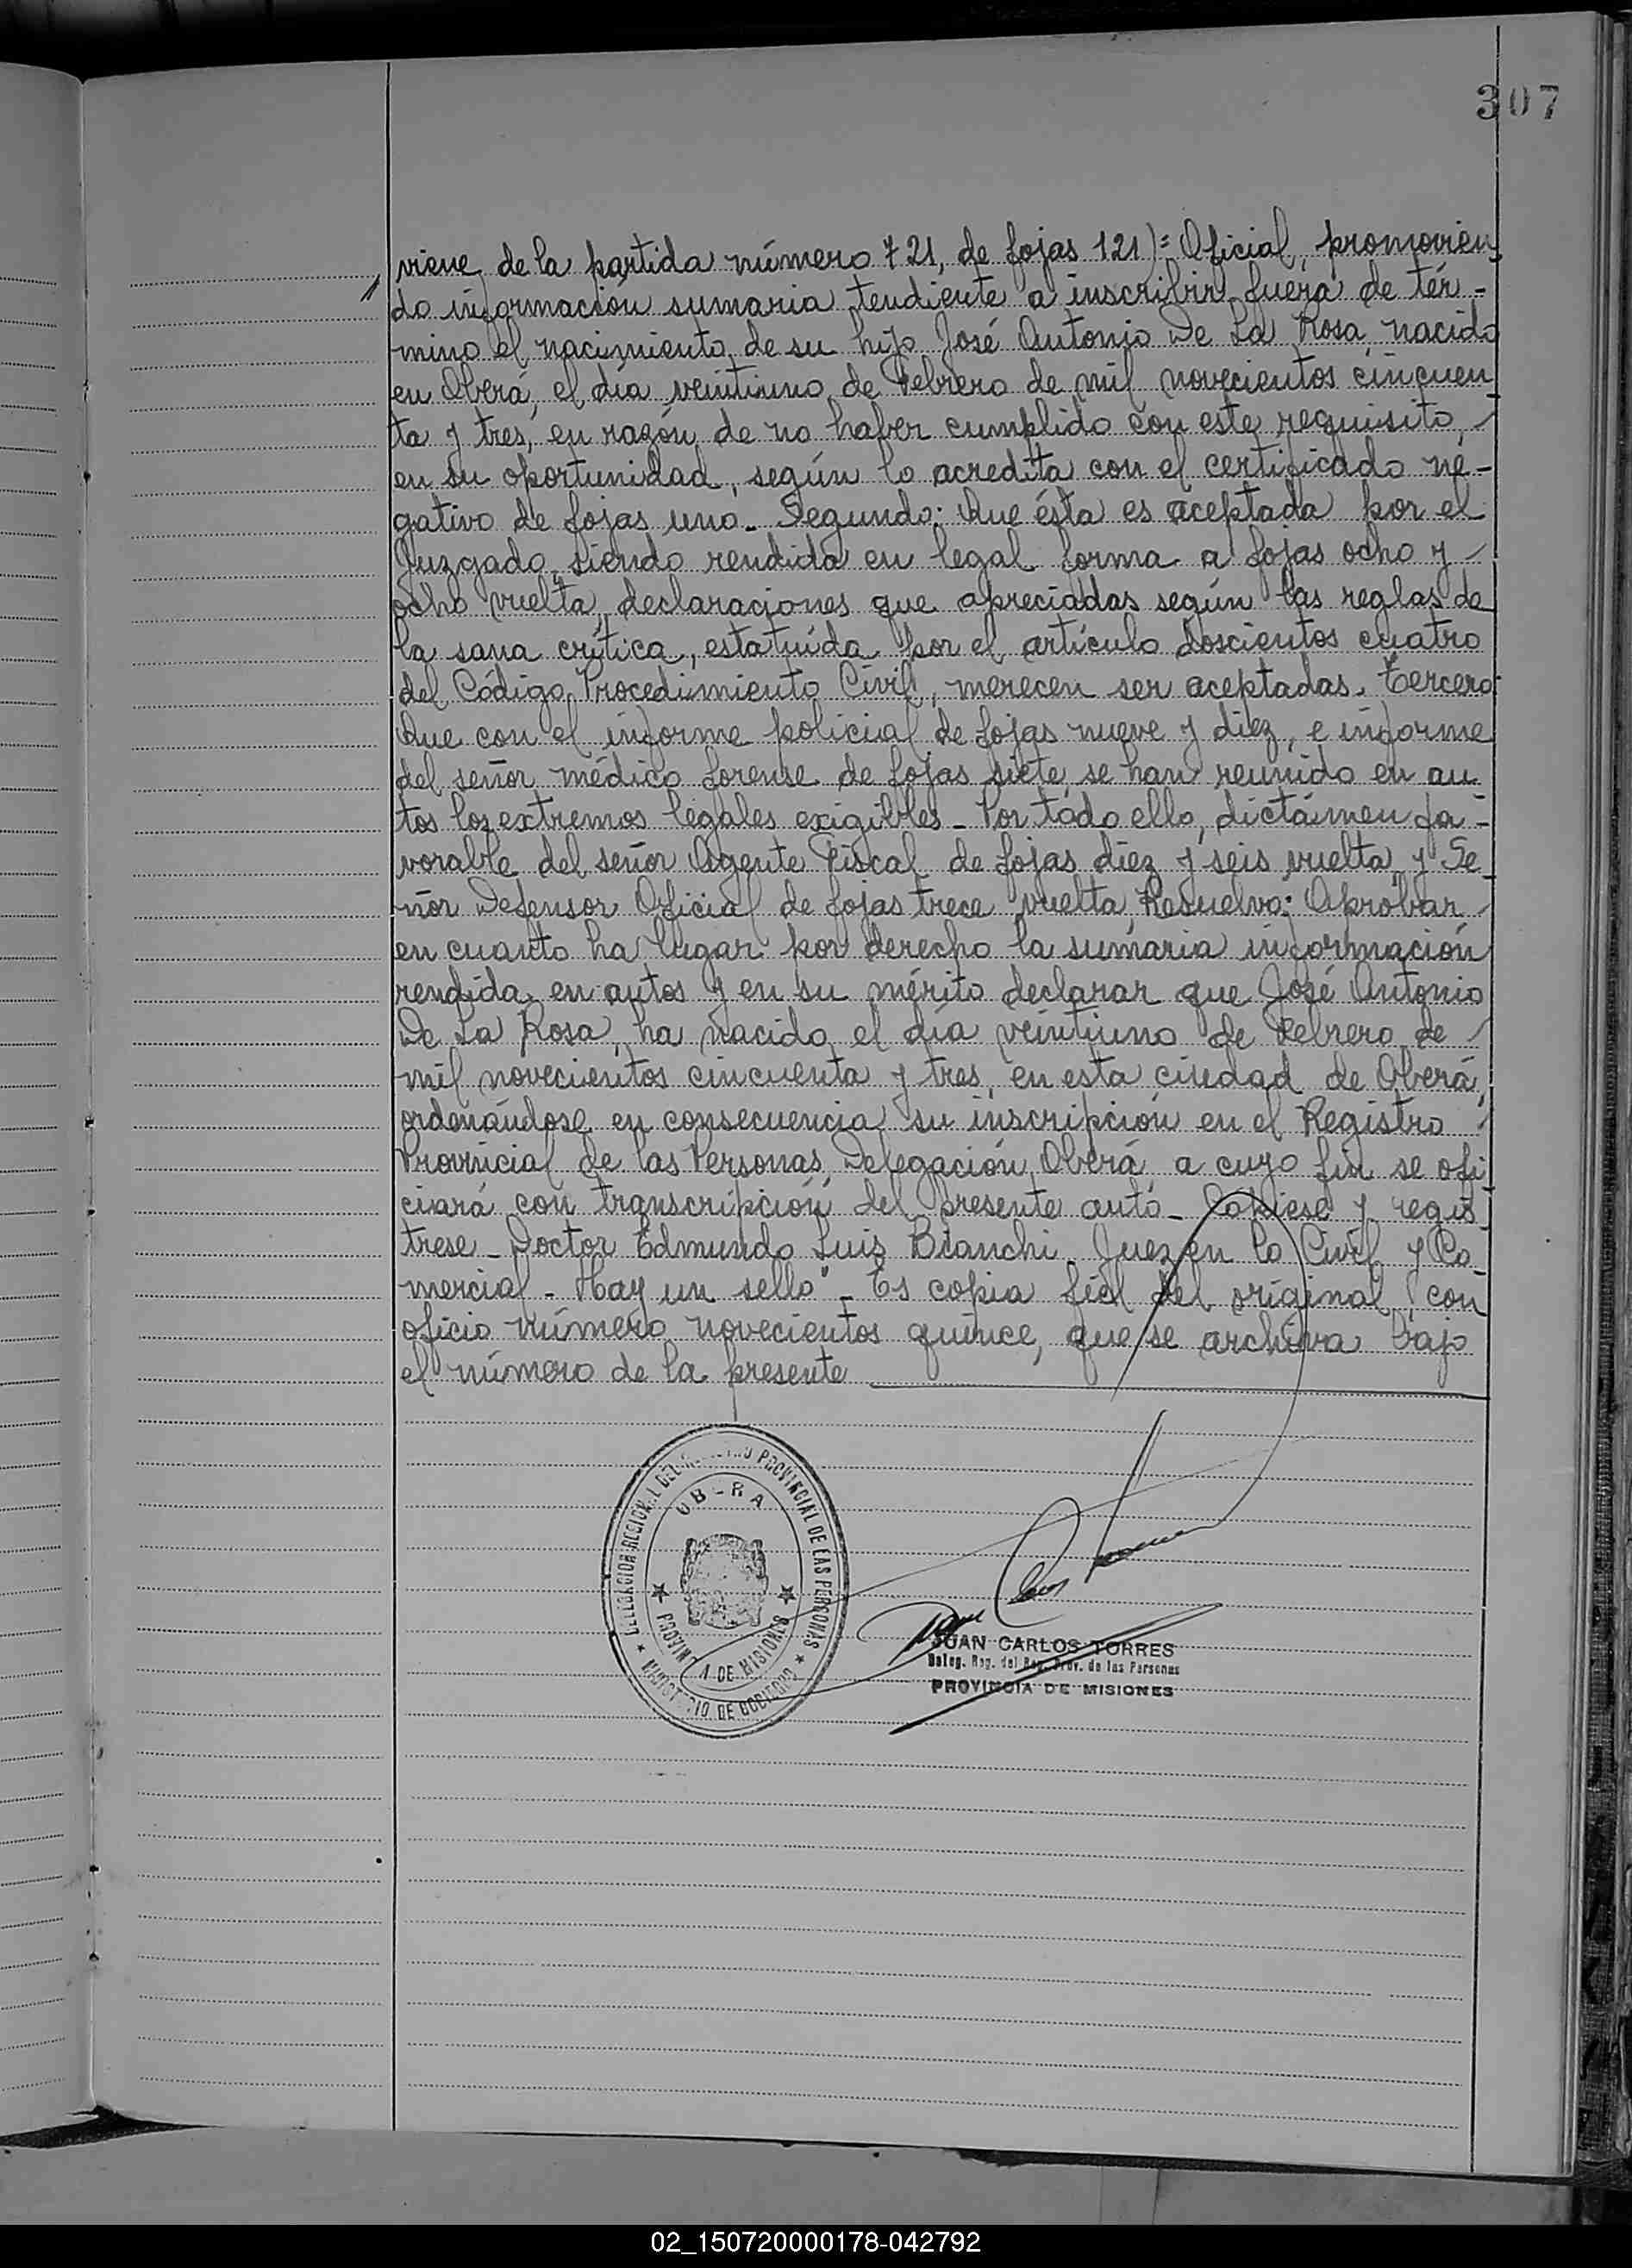 307
viene de la partida número 721, de fojas 121)= Oficial, promovien
do información sumaria tendiente a inscribir fuera de tér-
mino el nacimiento de su hijo José Antonio De La Rosa, nacido
en Oberá, el día veintiuno de Febrero de mil novecientos cincuen
ta y tres, en razón de no haber cumplido con este requisito,
en su oportunidad, según lo acredita con el certificado ne-
gativo de fojas uno_ Segundo: Que ésta es aceptada por el
Juzgado, siendo rendida en legal forma a fojas ocho y
ocho vuelta, declaraciones que apreciadas según las reglas de
la sana crítica, estatuída por el artículo doscientos cuatro
del Código Procedimiento Civil, merecen ser aceptadas. Tercero
Que con el informe policial de fojas nueve y diez, e informe
del señor médico forense de fojas siete, se han reunido en au
tos los extremos legales exigibles_ Por todo ello, dictámen fa-
vorable del señor Agente Fiscal de fojas diez y seis vuelta, y Se
ñor Defensor Oficial de fojas trece vuelta, Resuelvo: Aprobar
en cuanto ha lugar por derecho la sumaria información
rendida en autos y en su mérito declarar que José Antonio
De La Rosa, ha nacido el día veintiuno de Febrero de
mil novecientos cincuenta y tres, en esta ciudad de Oberá,
ordenándose en consecuencia su inscripción en el Registro
Provincial de las Personas, Delegación Oberá, a cuyo fin se ofi
ciará con transcripción del presente auto_ Cópiese y regís
trese_ Doctor Edmundo Luis Bianchi_ Juez en lo Civil y Co
mercial_ Hay un sello"_ Es copia fiel del original, con
oficio número novecientos quince, que se archiva bajo
el número de la presente
PROVINCIAL DE LAS PERSONAS
OBERA
PROVINCIA DE MISIONES
MINISTERIO DE GOBIERNO
JUAN CARLOS TORRES
Deleg. Reg. del Reg. Prov. de las Personas
PROVINCIA DE MISIONES
02_150720000178-042792